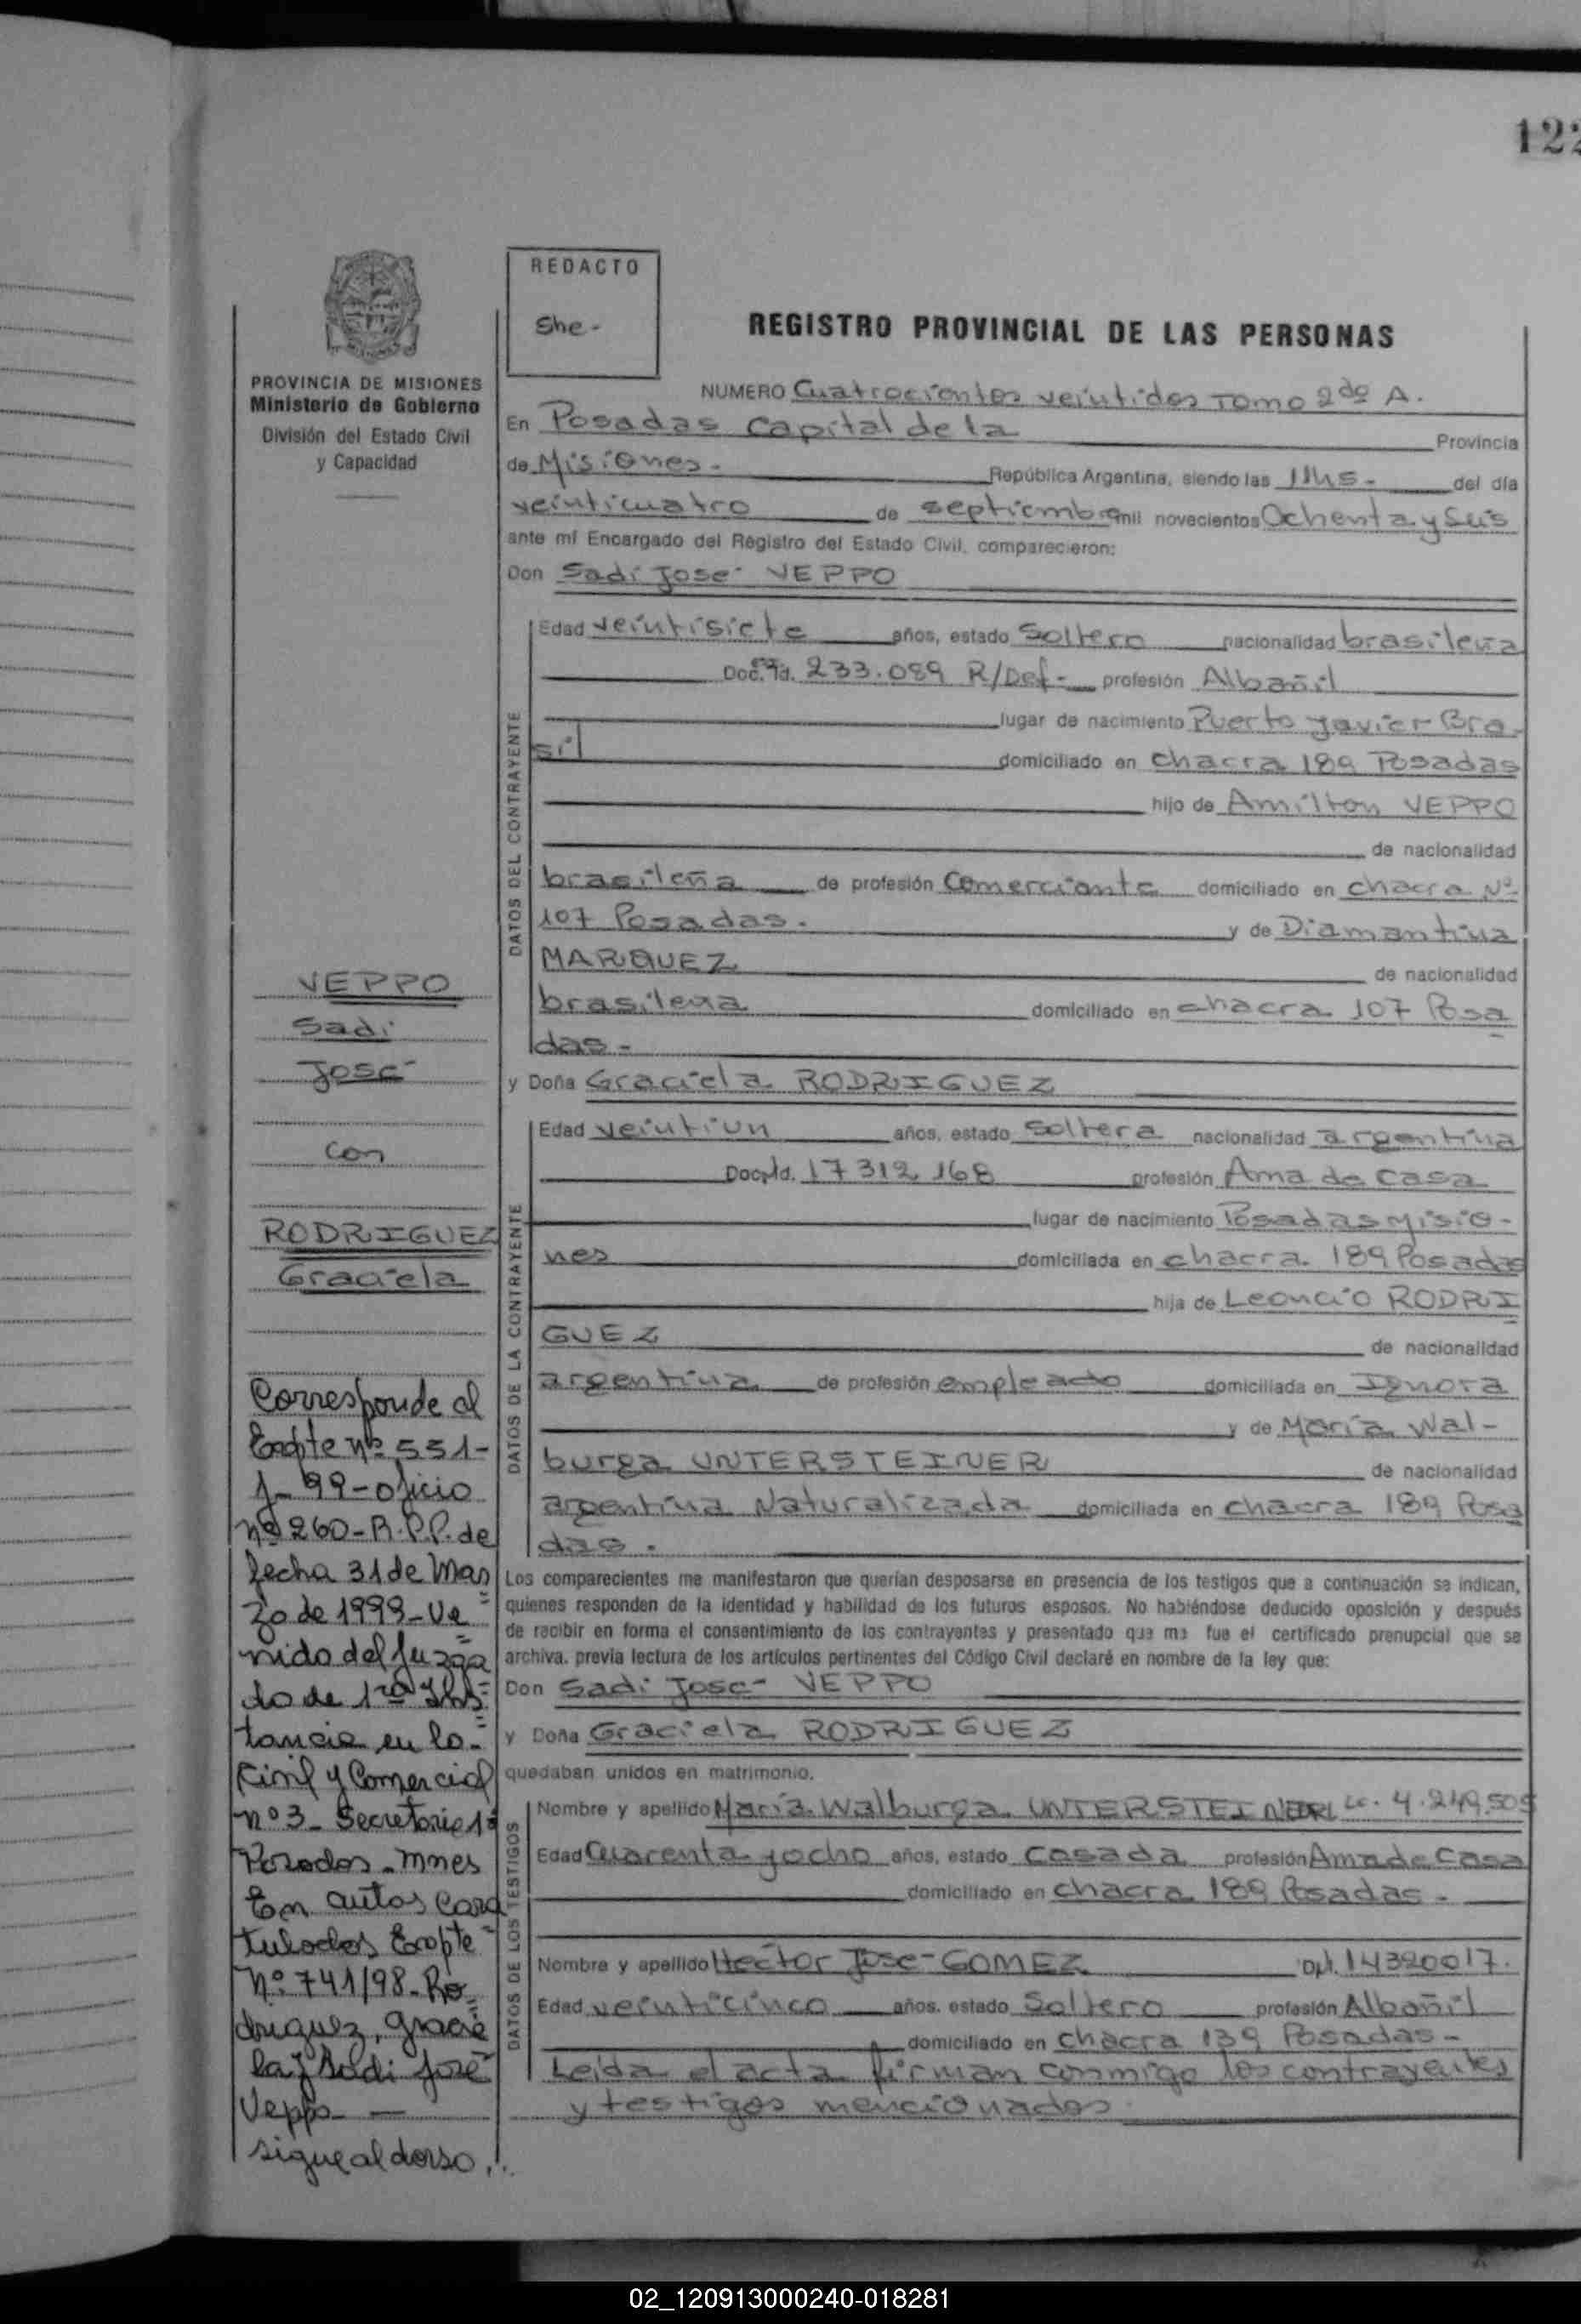 122
REDACTO
She-
REGISTRO PROVINCIAL DE LAS PERSONAS
PROVINCIA DE MISIONES
Ministerio de Gobierno
División del Estado Civil
y Capacidad
NUMERO Cuatrocientos veintidos Tomo 2do A.
En Posadas Capital de la Provincia
de Misiones.- República Argentina, siendo las del día
veinticuatro de septiembre mil novecientos Ochenta y Seis
ante mí Encargado del Registro del Estado Civil, comparecieron:
Don Sadi José VEPPO
DATOS DEL CONTRAYENTE
Edad veintisiete años, estado Soltero nacionalidad brasileña
Doc. Id. 233.089 R/Def- profesión Albañil
lugar de nacimiento Puerto Javier-Bra-
sil
domiciliado en chacra 189 Posadas
hijo de Amilton VEPPO
de nacionalidad
brasileña de profesión Comerciante domiciliado en chacra Nº
107 Posadas. y de Diamantina
MARQUEZ de nacionalidad
brasilena domiciliado en chacra 107 Posa
das-
y Doña Graciela RODRIGUEZ
DATOS DE LA CONTRAYENTE
Edad veintiun años, estado Soltera nacionalidad argentina
Doc. Id. 17312168 profesión Ama de Casa
lugar de nacimiento Posadas Misio-
nes domiciliada en chacra 189 Posadas
hija de Leoncio RODRI
GUEZ de nacionalidad
argentina de profesión empleado domiciliada en Ignora
y de María Wal-
burga UNTERSTEINER de nacionalidad
argentina Naturalizada domiciliada en chacra 189 Posa
das.
Los comparecientes me manifestaron que querían desposarse en presencia de los testigos que a continuación se indican,
quienes responden de la identidad y habilidad de los futuros esposos. No habiéndose deducido oposición y después
de recibir en forma el consentimiento de los contrayentes y presentado que me fue el certificado prenupcial que se
archiva. previa lectura de los artículos pertinentes del Código Civil declaré en nombre de la ley que:
Don Sadi José VEPPO
y Doña Graciela RODRIGUEZ
quedaban unidos en matrimonio.
DATOS DE LOS TESTIGOS
Nombre y apellido María Walburga UNTERSTEINER Lc. 4.249.505
Edad Cuarenta y ocho años, estado Casada profesión Ama de Casa
domiciliado en chacra 189 Posadas-
Nombre y apellido Hector Jose GOMEZ Dni. 14320017.
Edad veinticinco años. estado Soltero profesión Albañil
domiciliado en chacra 139 Posadas-
Leída el acta firman conmigo los contrayentes
y testigos mencionados
VEPPO
Sadi
José
con
RODRIGUEZ
Graciela
Corresponde al
Expte nº 551-
J-99-oficio
nº 260-R.P.P. de
fecha 31 de Mar
zo de 1999-Ve
nido del Juzga
do de 1ra Ins=
tancia en lo
Civil y Comercial
nº 3- Secretaria 1ª
Posadas-Mnes
En autos cara
tulados Expte
Nº 741/98-Ro
driguez, Gracie
la y Sadi José
Veppo-
sigue al dorso...
02_120913000240-018281